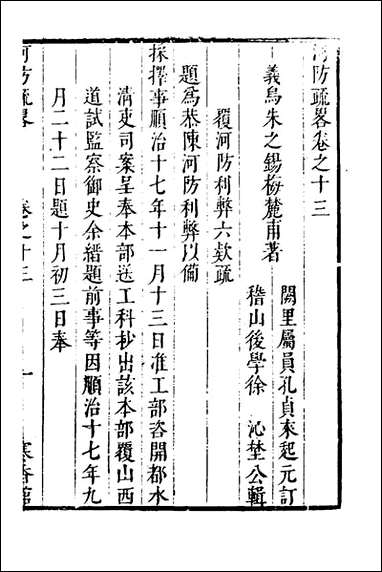 河防疏畧卷之十三
義烏朱之錫梅麓甫著
闕里屬員孔貞來起元訂
稽山後學徐　沁埜公輯
覆河防利弊六欵疏
題為恭陳河防利弊以備
採擇事順治十七年十一月十三日准工部咨開都水
清吏司案呈奉本部送工科抄出該本部覆山西
道試監察御史余縉題前事等因順治十七年九
月二十二日題十月初三日奉
河防疏畧　卷之十三　一　寒香館